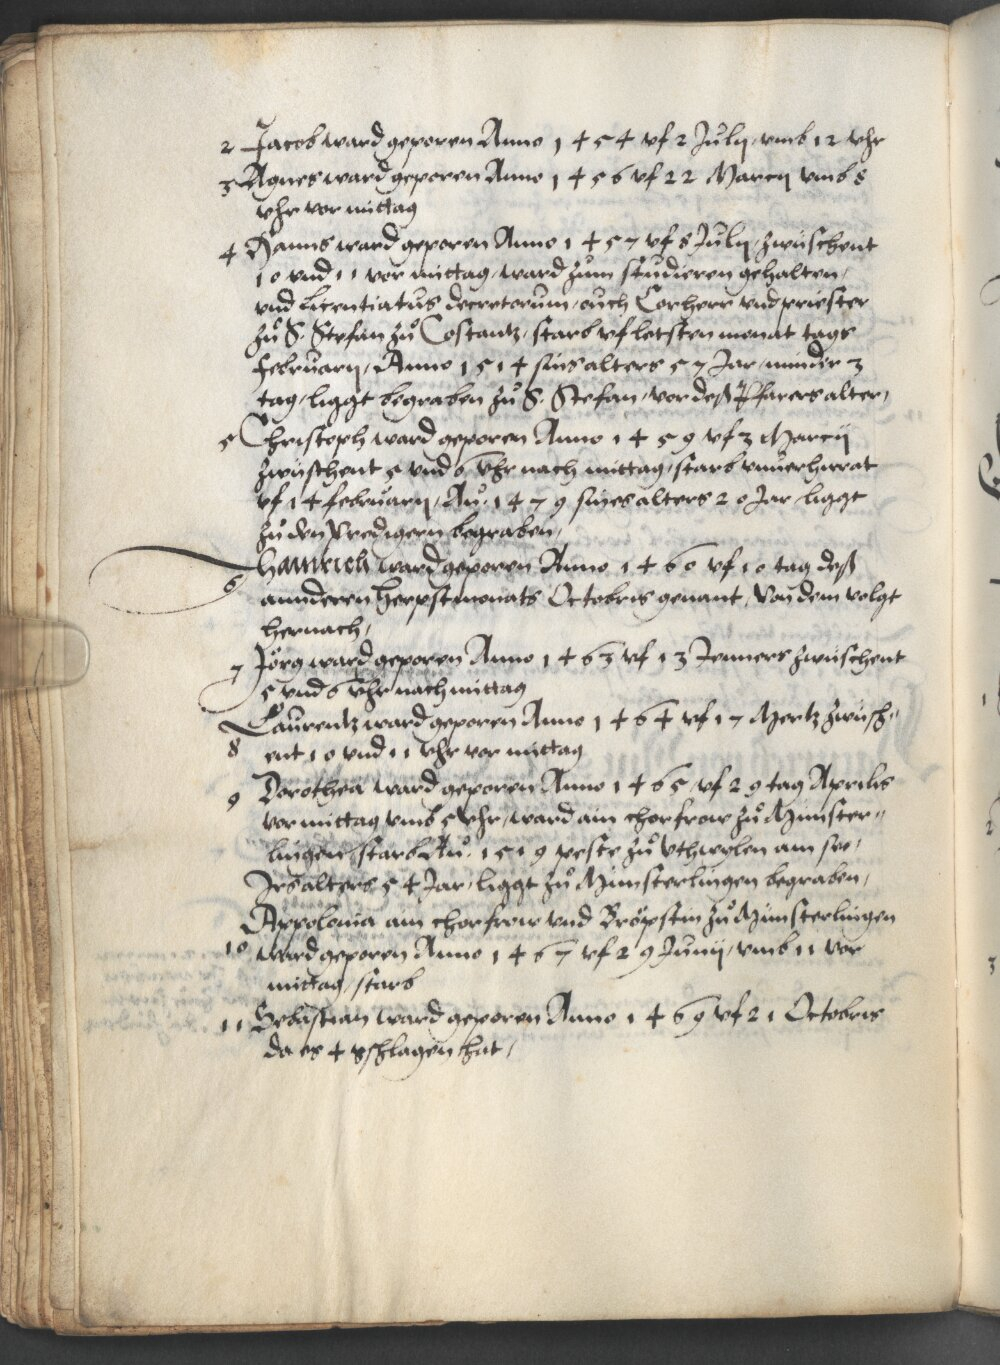 2 Jacob ward geporen Anno 1454 vf 2 Julij, vmb 12 vhr
3 Agnes ward geporen Anno 1456 vf 22 Marcij vmb 8
vhr vor mittag
4 Hanns ward geporen Anno 1457 vf 8 Julij, zwüschent
10 vnd 11 vor mittag, ward zum studieren gehalten,
vnd Licentiatus decretorum, ouch Corherr vnd priester
zů S. Stefan zů Costantz, starb vf letsten monat tags
februarij, Anno 1514 sins alters 57 Jar, minder 3
tag, liggt begraben zů S. Stefan, vor deß Pfarers alter,
5 Christoph ward geporen Anno 1459 vf 3 Marcij
zwüschent 5 vnd 6 vhr nach mittag, starb vnuerhirat
vf 14 februarij, Aũ. 1479 sines alters 20 Jar, liggt
zů den Predigern begraben,
6 Hainrich ward geporen Anno 1460 vf 10 tag deß
annderen Herpstmonats Octobris genant, Von dem volgt
hernach,
7 Jörg ward geporen Anno 1463 vf 13 Jenners zwüschent
5 vnd 6 vhr nach mittag
8 Laurentz ward geporen Anno 1464 vf 17 Mertz zwüsch-
ent 10 vnd 11 vhr vor mittag
9 Dorothea ward geporen Anno 1465, vf 29 tag Aprilis
vor mittag vmb 5 vhr, ward ain chorfrow zů Münster-
lingen, starb Aũ. 1519 peste zů Vthwylen am see,
Jrs alters 54 Jar, liggt zů Münsterlingen begraben,
10 Appolonia ain chorfrow vnd Bröpstin zů Münsterlingen
ward geporen Anno 1467 vf 29 Junij, vmb 11 vor
mittag, starb
11 Sebastian ward geporen Anno 1469 vf 21 Octobris
da es 4 gschlagen hat,